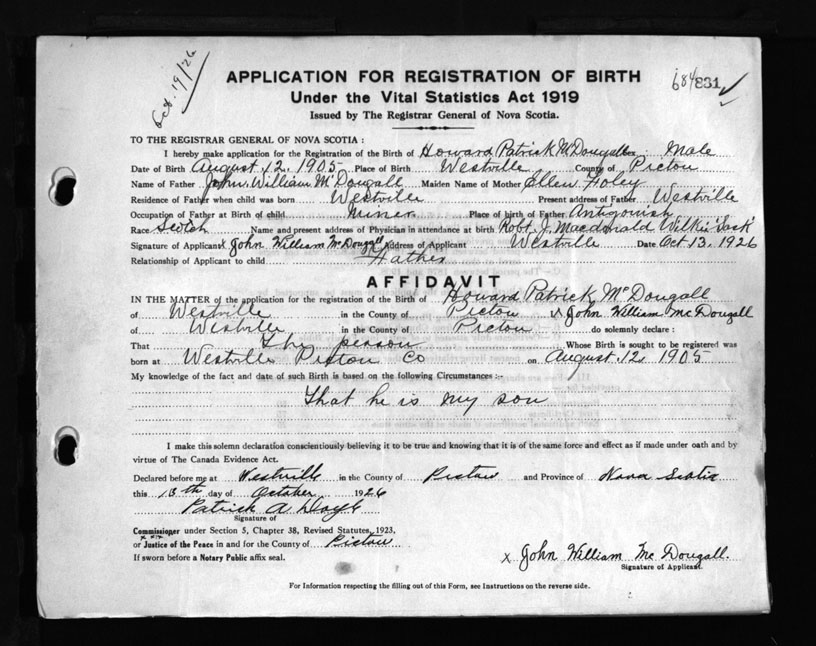 Oct. 19/26
684 831
APPLICATION FOR REGISTRATION OF BIRTH
Under the Vital Statistics Act 1919
Issued by The Registrar General of Nova Scotia.
TO THE REGISTRAR GENERAL OF NOVA SCOTIA :
I hereby make application for the Registration of the Birth of Howard Patrick McDougall Sex Male
Date of Birth August 12, 1905 Place of Birth Westville County of Pictou
Name of Father John William McDougall Maiden Name of Mother Ellen Foley
Residence of Father when child was born Westville Present address of Father Westville
Occupation of Father at Birth of child Miner Place of birth of Father Antigonish
Race Scotch Name and present address of Physician in attendance at birth Robt. J. Macdonald Wilkie Sask
Signature of Applicant John William McDougall Address of Applicant Westville Date Oct 13, 1926
Relationship of Applicant to child Father
AFFIDAVIT
IN THE MATTER of the application for the registration of the Birth of Howard Patrick McDougall
of Westville in the County of Pictou x John William McDougall
of Westville in the County of Pictou do solemnly declare :
That The person Whose Birth is sought to be registered was
born at Westville Pictou Co on August 12, 1905
My knowledge of the fact and date of such Birth is based on the following Circumstances :-
That he is my son
I make this solemn declaration conscientiously believing it to be true and knowing that it is of the same force and effect as if made under oath and by
virtue of The Canada Evidence Act.
Declared before me at Westville in the County of Pictou and Province of Nova Scotia
this 13th day of October 1926
Patrick A Doyle
Signature of
Commissioner under Section 5, Chapter 38, Revised Statutes, 1923,
or Justice of the Peace in and for the County of Pictou
If sworn before a Notary Public affix seal.
x John William McDougall.
Signature of Applicant.
For Information respecting the filling out of this Form, see Instructions on the reverse side.